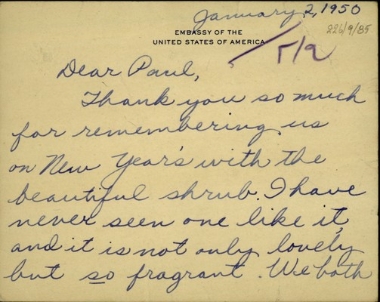 January 2, 1950
226/9/85
EMBASSY OF THE
UNITED STATES OF AMERICA
Dear Paul,
Thank you so much
for remembering us
on New Year's with the
beautiful shrub. I have
never seen one like it,
and it is not only lovely
but so fragrant. We both